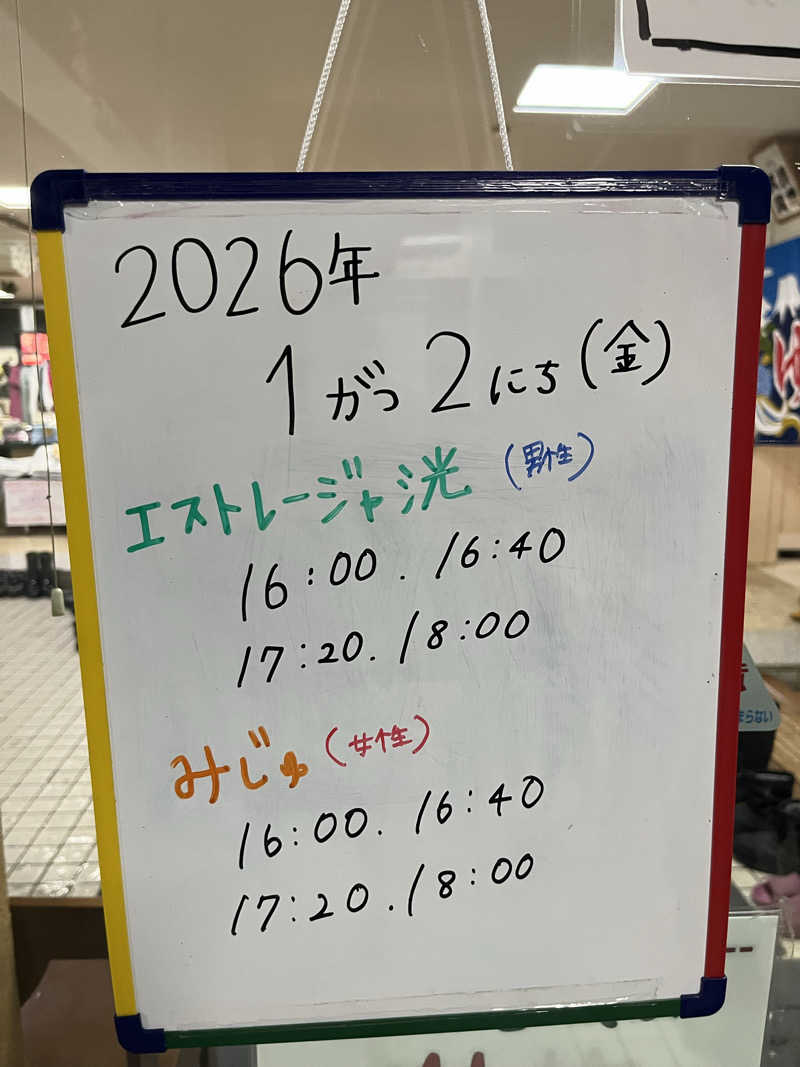 2026年
1がつ2にち(金)
エストレージャ洸(男性)
16:00. 16:40
17:20. 18:00
みじゅ(女性)
16:00. 16:40
17:20. 18:00
まらない